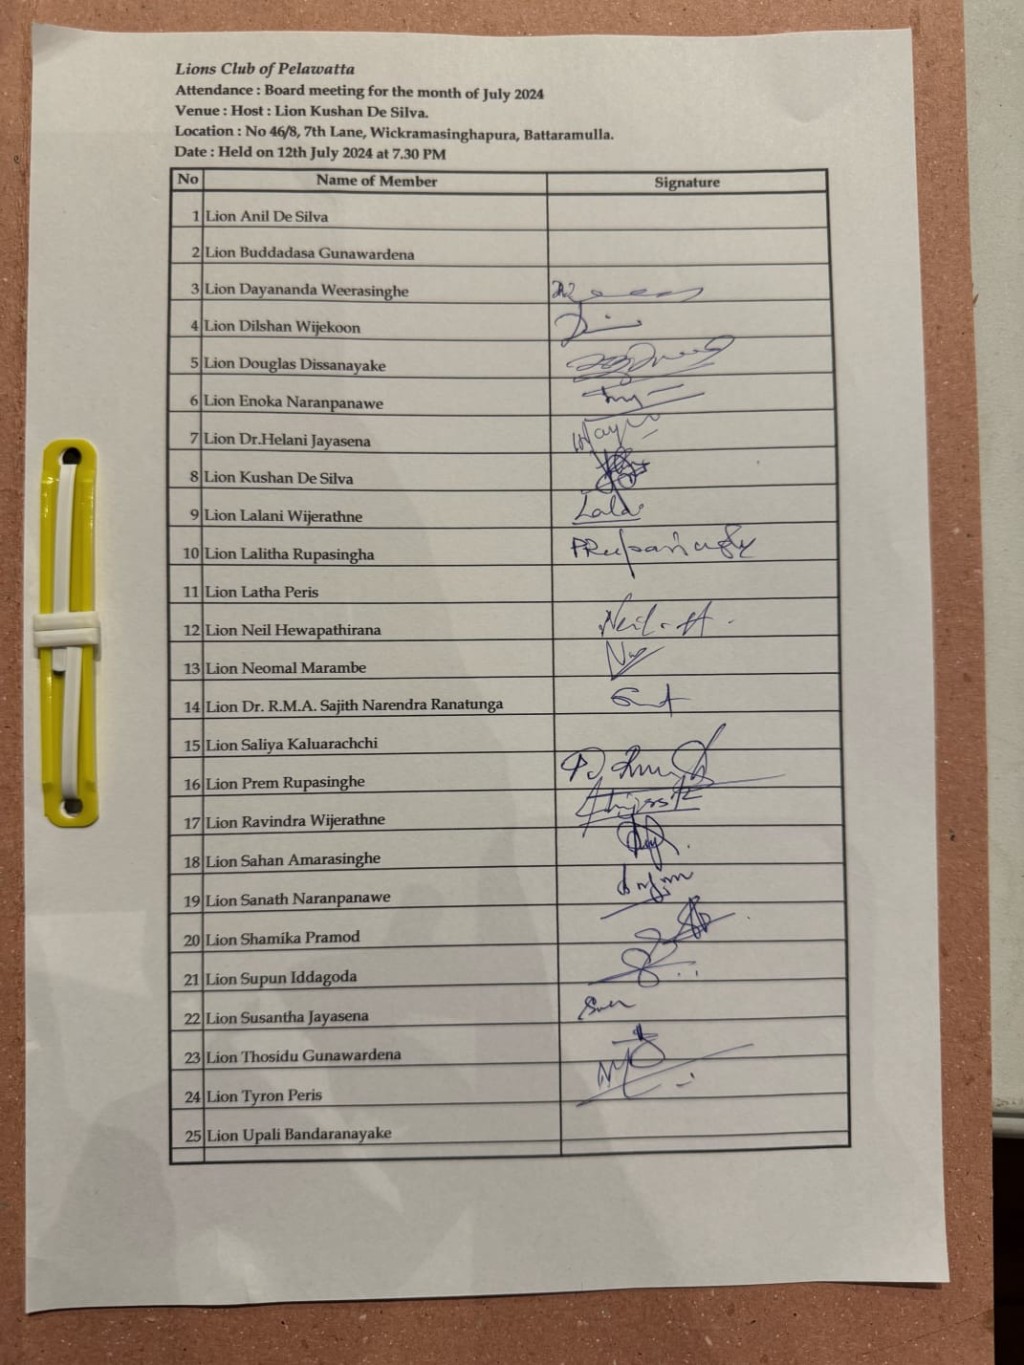 Lions Club of Pelawatta
Attendance : Board meeting for the month of July 2024
Venue : Host : Lion Kushan De Silva.
Location : No 46/8, 7th Lane, Wickramasinghapura, Battaramulla.
Date : Held on 12th July 2024 at 7.30 PM
No Name of Member Signature
1 Lion Anil De Silva
2 Lion Buddadasa Gunawardena
3 Lion Dayananda Weerasinghe
4 Lion Dilshan Wijekoon
5 Lion Douglas Dissanayake
6 Lion Enoka Naranpanawe
7 Lion Dr.Helani Jayasena
8 Lion Kushan De Silva
9 Lion Lalani Wijerathne
10 Lion Lalitha Rupasingha
11 Lion Latha Peris
12 Lion Neil Hewapathirana Neil. H.
13 Lion Neomal Marambe
14 Lion Dr. R.M.A. Sajith Narendra Ranatunga
15 Lion Saliya Kaluarachchi
16 Lion Prem Rupasinghe
17 Lion Ravindra Wijerathne
18 Lion Sahan Amarasinghe
19 Lion Sanath Naranpanawe
20 Lion Shamika Pramod
21 Lion Supun Iddagoda
22 Lion Susantha Jayasena
23 Lion Thosidu Gunawardena
24 Lion Tyron Peris
25 Lion Upali Bandaranayake